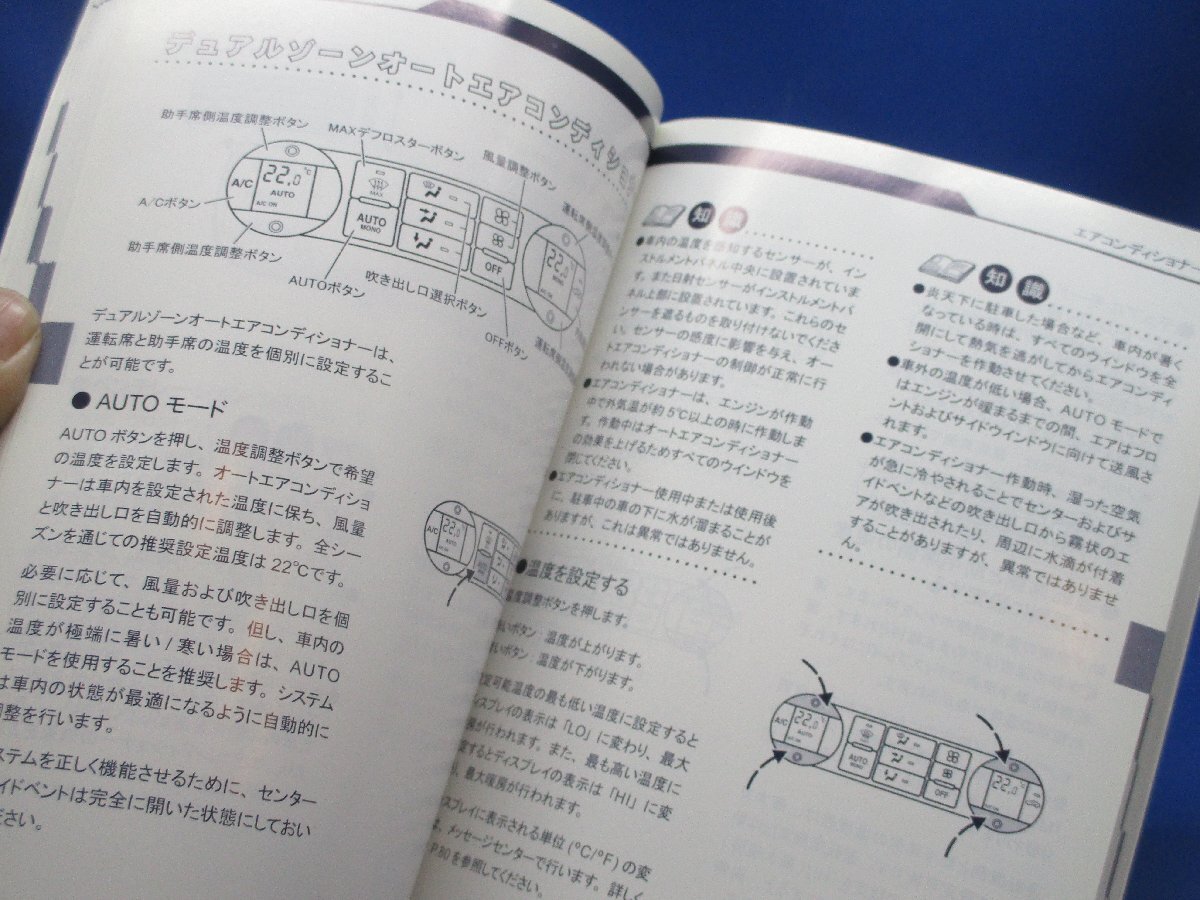 デュアルゾーンオートエアコンディショ
助手席側温度調整ボタン
MAXデフロスターボタン
風量調整ボタン
A/Cボタン
助手席側温度調整ボタン
AUTOボタン
吹き出し口選択ボタン
OFFボタン
A/C
22.0
℃
AUTO
A/C ON
MAX
AUTO
MONO
OFF
22.0
デュアルゾーンオートエアコンディショナーは、
運転席と助手席の温度を個別に設定するこ
とが可能です。
● AUTO モード
AUTO ボタンを押し、温度調整ボタンで希望
の温度を設定します。オートエアコンディショ
ナーは車内を設定された温度に保ち、風量
と吹き出し口を自動的に調整します。全シー
ズンを通じての推奨設定温度は 22℃です。
必要に応じて、風量および吹き出し口を個
別に設定することも可能です。但し、車内の
温度が極端に暑い / 寒い場合は、AUTO
モードを使用することを推奨します。システム
は車内の状態が最適になるように自動的に
調整を行います。
ステムを正しく機能させるために、センター
イドベントは完全に開いた状態にしておい
ださい。
A/C
22.0
エアコンディショナー
知識
●車内の温度を感知するセンサーが、イン
ストルメントパネル中央に設置されていま
す。また日射センサーがインストルメントパ
ネル上部に設置されています。これらのセ
ンサーを遮るものを取り付けないでくださ
い。センサーの感度に影響を与え、オー
トエアコンディショナーの制御が正常に行
われない場合があります。
●エアコンディショナーは、エンジンが作動
中で外気温が約 5℃以上の時に作動しま
す。作動中はオートエアコンディショナー
の効果を上げるためすべてのウインドウを
閉じてください。
●エアコンディショナー使用中または使用後
に、駐車中の車の下に水が溜まることが
ありますが、これは異常ではありません。
●温度を設定する
温度調整ボタンを押します。
いボタン : 温度が上がります。
いボタン : 温度が下がります。
定可能温度の最も低い温度に設定すると
ィスプレイの表示は「LO」に変わり、最大
が行われます。また、最も高い温度に
定するとディスプレイの表示は「HI」に変
、最大暖房が行われます。
スプレイに表示される単位 (℃/°F) の変
は、メッセージセンターで行います。詳しく
P.80 を参照してください。
知識
●炎天下に駐車した場合など、車内が暑く
なっている時は、すべてのウインドウを全
開にして熱気を逃がしてからエアコンディ
ショナーを作動させてください。
●車外の温度が低い場合、AUTOモードで
はエンジンが暖まるまでの間、エアはフロ
ントおよびサイドウインドウに向けて送風さ
れます。
●エアコンディショナー作動時、湿った空気
が急に冷やされることでセンターおよびサ
イドベントなどの吹き出し口から霧状のエ
アが吹き出されたり、周辺に水滴が付着
することがありますが、異常ではありませ
ん。
A/C
22.0
AUTO
MONO
OFF
22.0